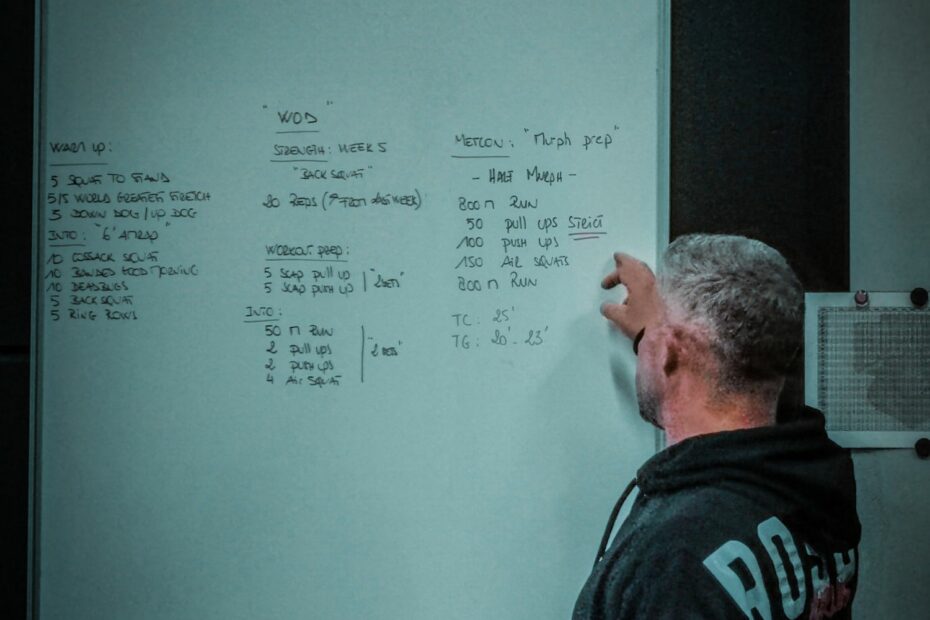 "WOD"
WARM UP:
5 SQUAT TO STAND
5/5 WORLD GREATEST STRETCH
5 DOWN DOG / UP DOG
INTO: "6' AMRAP"
10 COSSACK SQUAT
10 BANDED GOOD MORNING
10 DEADBUGS
5 BACK SQUAT
5 RING ROWS
STRENGTH: WEEK 5
"BACK SQUAT"
20 REPS (↑ FROM LAST WEEK)
WORKOUT PREP:
5 SCAP PULL UP
5 SCAP PUSH UP
"2 SETS"
INTO:
50 m RUN
2 PULL UPS
2 PUSH UPS
4 AIR SQUAT
"2 SETS"
METCON: "Murph prep"
- HALF MURPH -
800 m RUN
50 PULL UPS STRICT
100 PUSH UPS
150 AIR SQUATS
800 m RUN
TC: 25'
TG: 20' - 23'